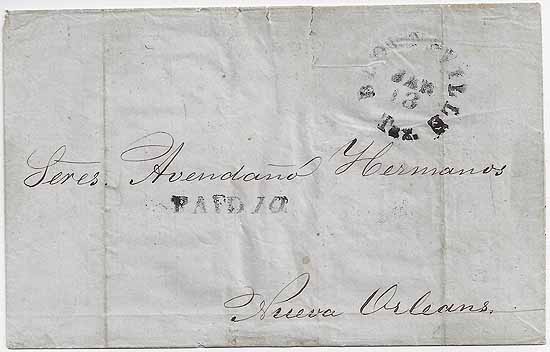 BROWNSVILLE
JAN
13
Tex.
Sres. Avendaño Hermanos
PAID 10
Nueva Orleans.